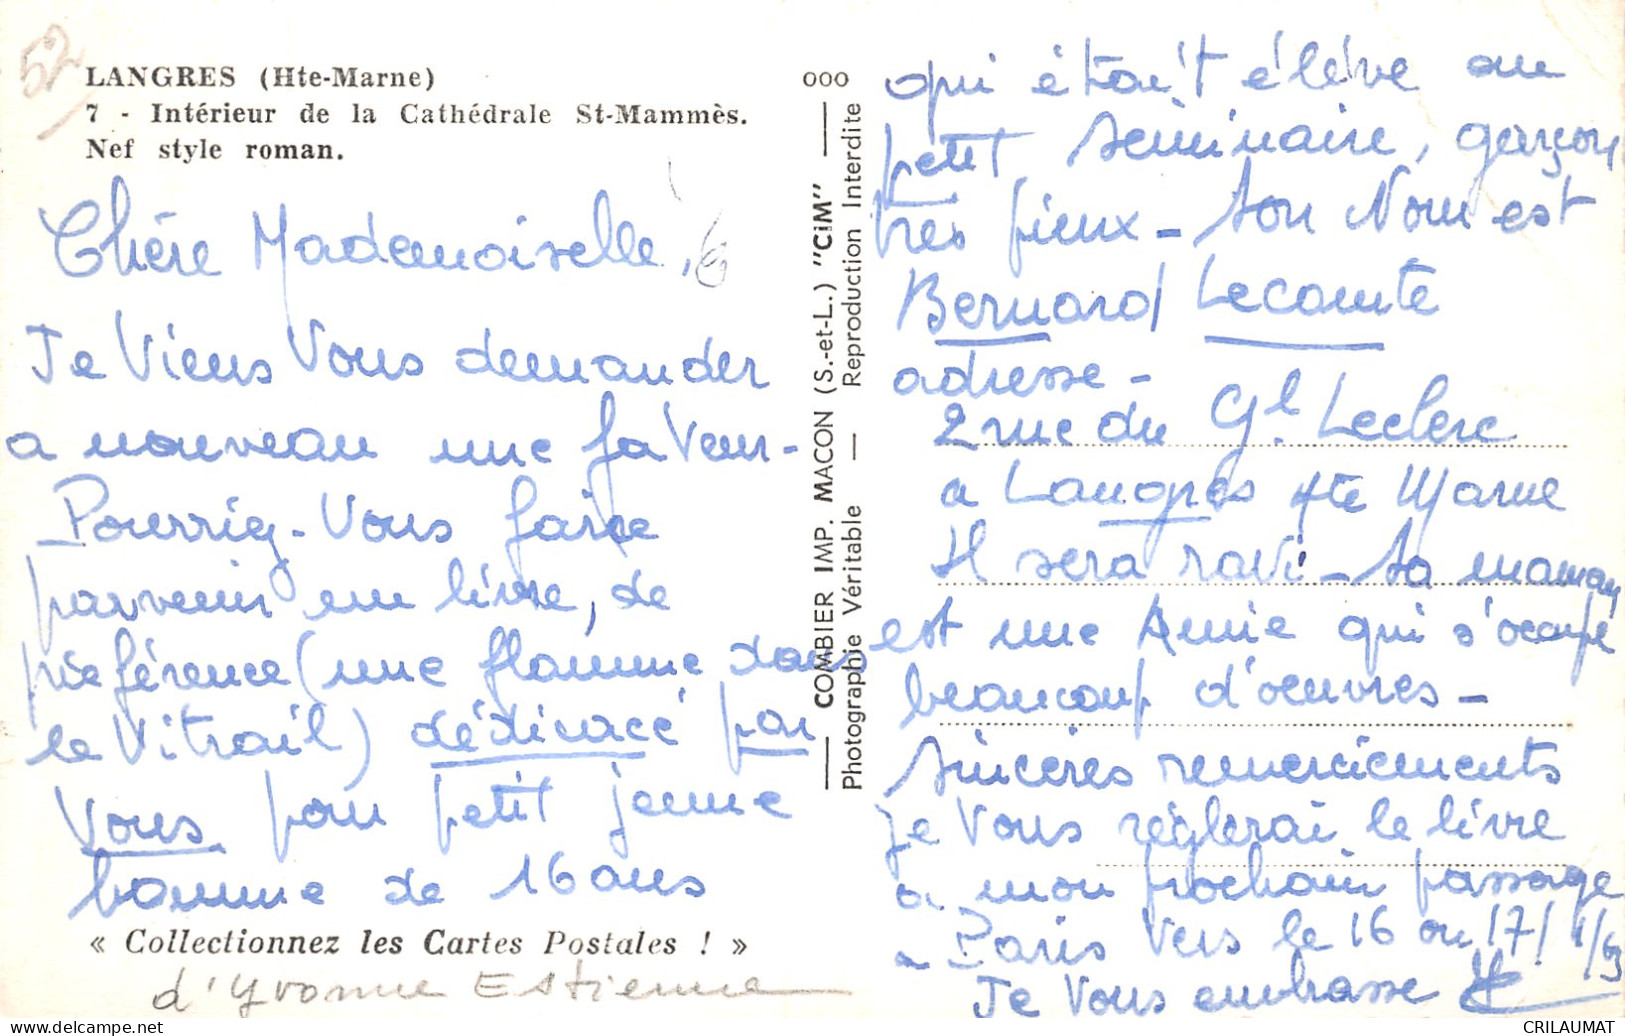 52
LANGRES (Hte-Marne)
7 - Intérieur de la Cathédrale St-Mammès.
Nef style roman.
Chére Mademoiselle,
Je Viens Vous demander
a nouveau une faveur-
Pourriez-Vous faire
parvenir un livre, de
préférence (une flamme dans
le Vitrail) dédicacé par
Vous pour petit jeune
homme de 16 ans
« Collectionnez les Cartes Postales ! »
d'Yvonne Estienne
000
COMBIER IMP. MACON (S.-et-L.) "CiM"
Photographie Véritable — Reproduction Interdite
qui était éléve au
petit seminaire, garçon
très pieux - son Nom est
Bernard Lecomte
adresse -
2 rue du Gl. Leclerc
a Langres Hte Marne
Il sera ravi - sa maman
est une Amie qui s'occupe
beaucoup d'oeuvres -
Sincères remerciements
je Vous règlerai le livre
a mon prochain passage
a Paris Vers le 16 ou 17/1/63
Je Vous embrasse
CRILAUMAT